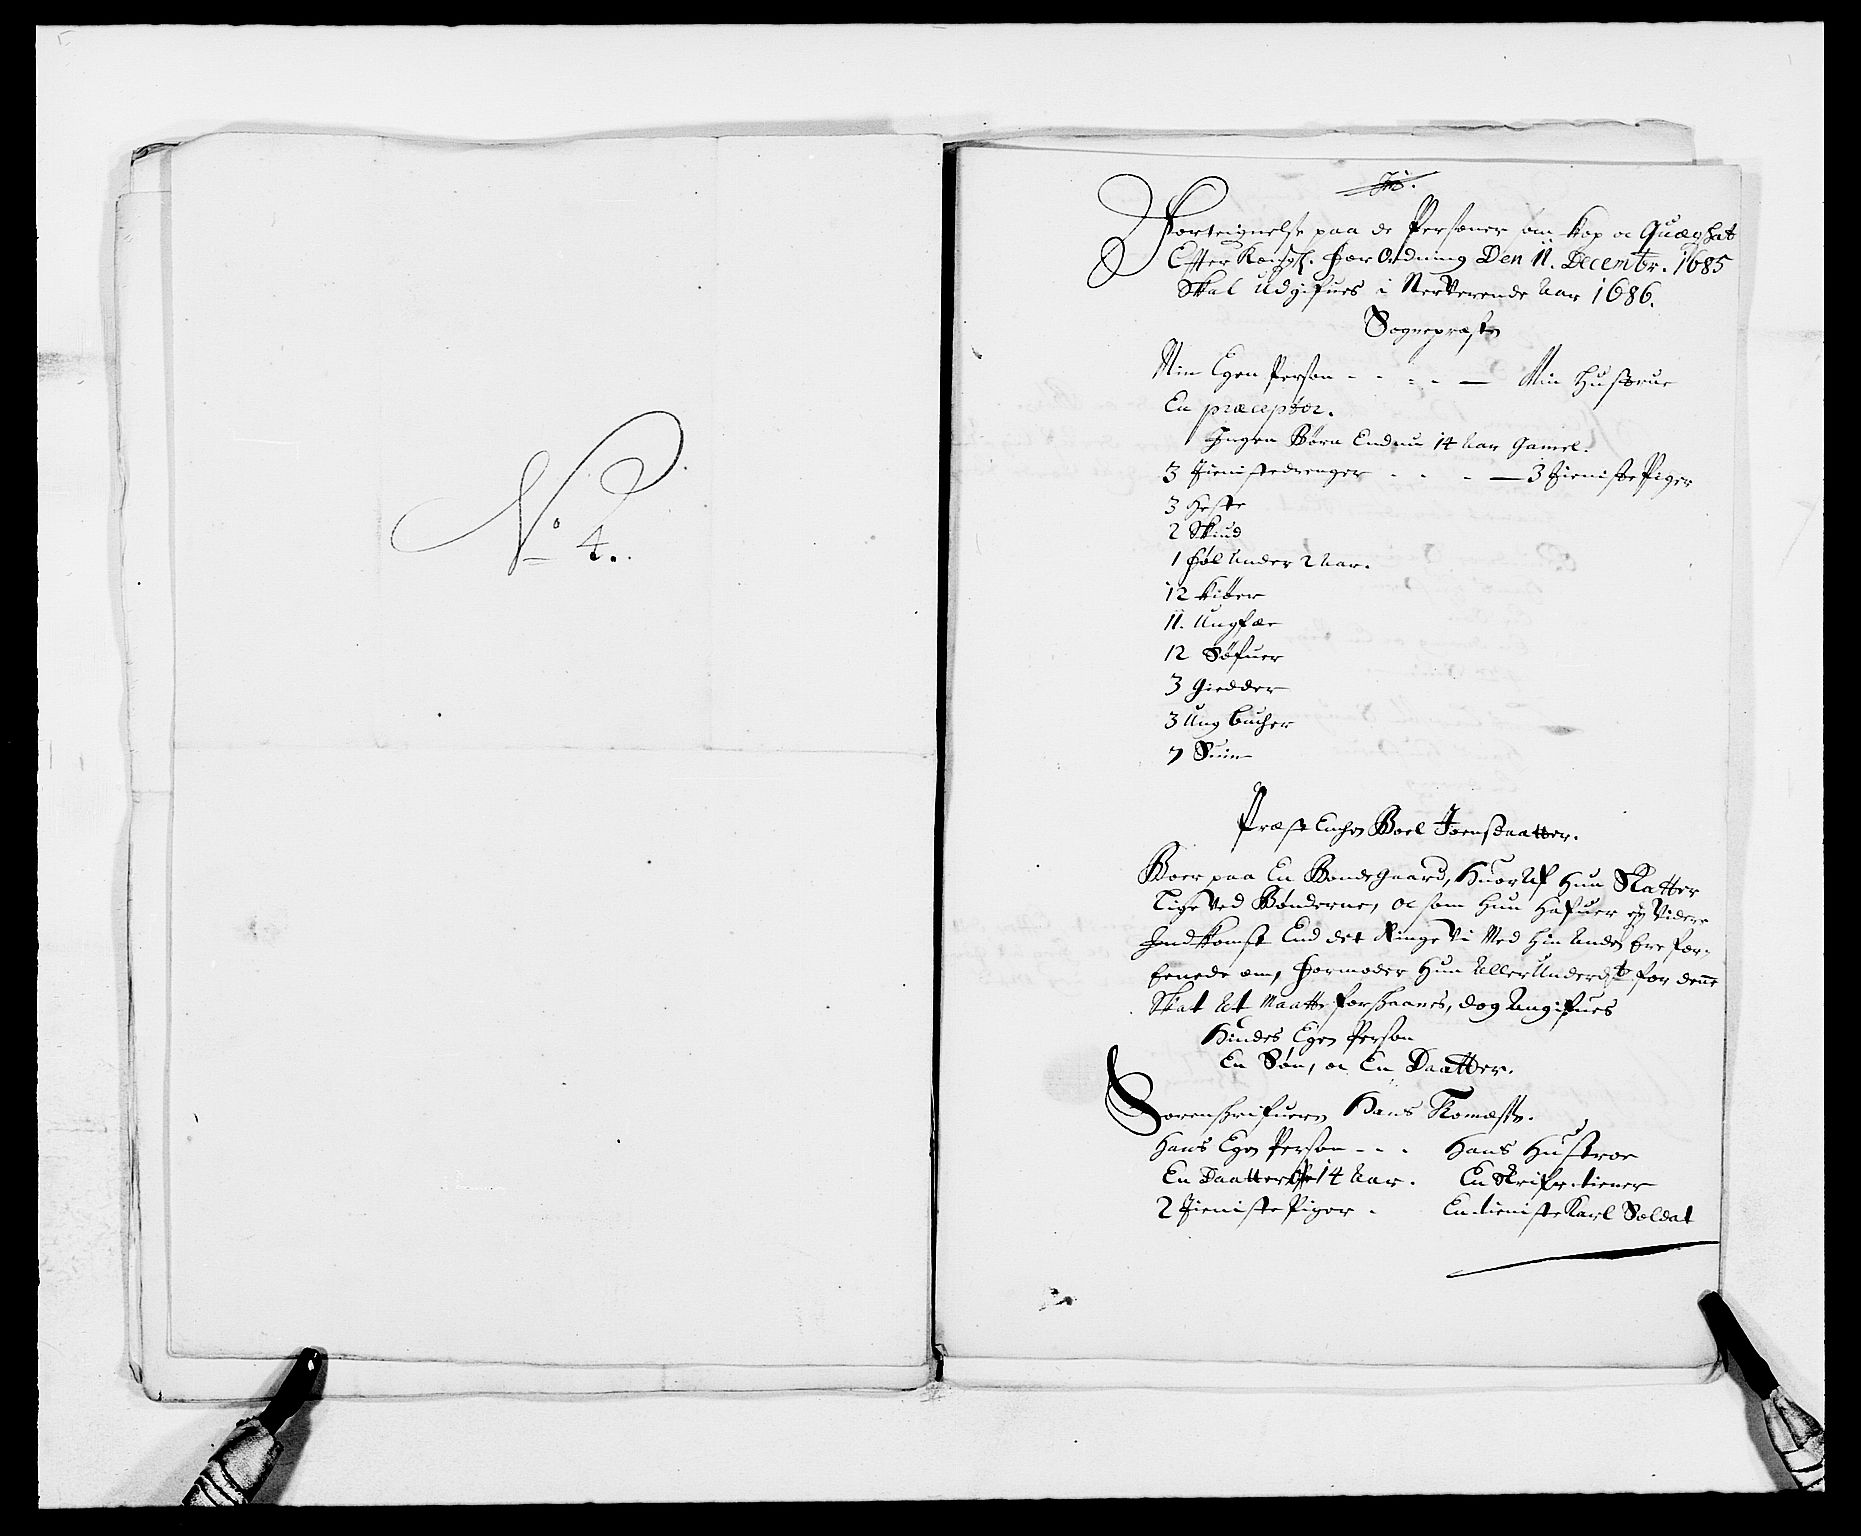 No 4.
Forteignelse paa de Personer som kop oc Quægskat
Efter Kongl. ForOrdning Den 11. Decembr. 1685
Skal Udgifues i NerVerende Aar 1686.
Sognepræsten
Min Egen Person - - - - — Min Hustrue
En præceptor.
Ingen Børn Endnu 14 Aar Gamel.
3 Tienistedrenger - - - — 3 TienistePiger
3 Heste
2 Skiud
1 Føl Under 2 Aar.
12 Kiøer
11. Ungfæe
12 Søfuer
3 Giedder
3 Ung bucher
7 Suin
Præst Enchen Boel Joensdaatter.
Boer paa En Bondegaard, HuorAf Hun Skatter
Lige Ved Bønderne, oc som Hun Hafuer ey Videre
Indkomst End det Ringe Vi Med Hin Anden Ere for-
Eenede om, Formoder Hun AllerUnderdst for denne
Skat At Maatte forskaanes, dog Angifues
Hindes Egen Person
En Søn, oc En Daatter.
Sorenskrifueren Hans
Hans Egen Person - - - Hans Hustroe
En Daatter 14 Aar. En Skrifuertiener
2 TienistePiger - En tienisteKarl Soldat